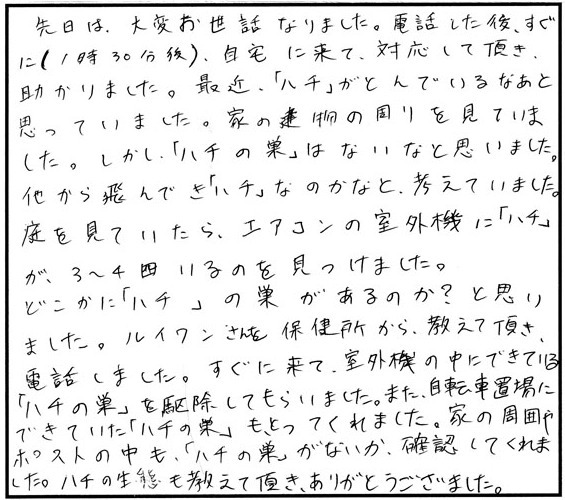 先日は、大変お世話なりました。電話した後、すぐ
に(1時30分後)、自宅に来て、対応して頂き、
助かりました。最近、「ハチ」がとんでいるなあと
思っていました。家の建物の周りを見ていま
した。しかし、「ハチの巣」はないなと思いました。
他から飛んでき「ハチ」なのかなと、考えていました。
庭を見ていたら、エアコンの室外機に「ハチ」
が、3〜4匹いるのを見つけました。
どこかに「ハチ」の巣があるのか?と思い
ました。ルイワンさんを保健所から、教えて頂き、
電話しました。すぐに来て、室外機の中にできている
「ハチの巣」を駆除してもらいました。また、自転車置場に
できていた「ハチの巣」もとってくれました。家の周囲や
ポストの中も、「ハチの巣」がないか、確認してくれま
した。ハチの生態も教えて頂き、ありがとうございました。